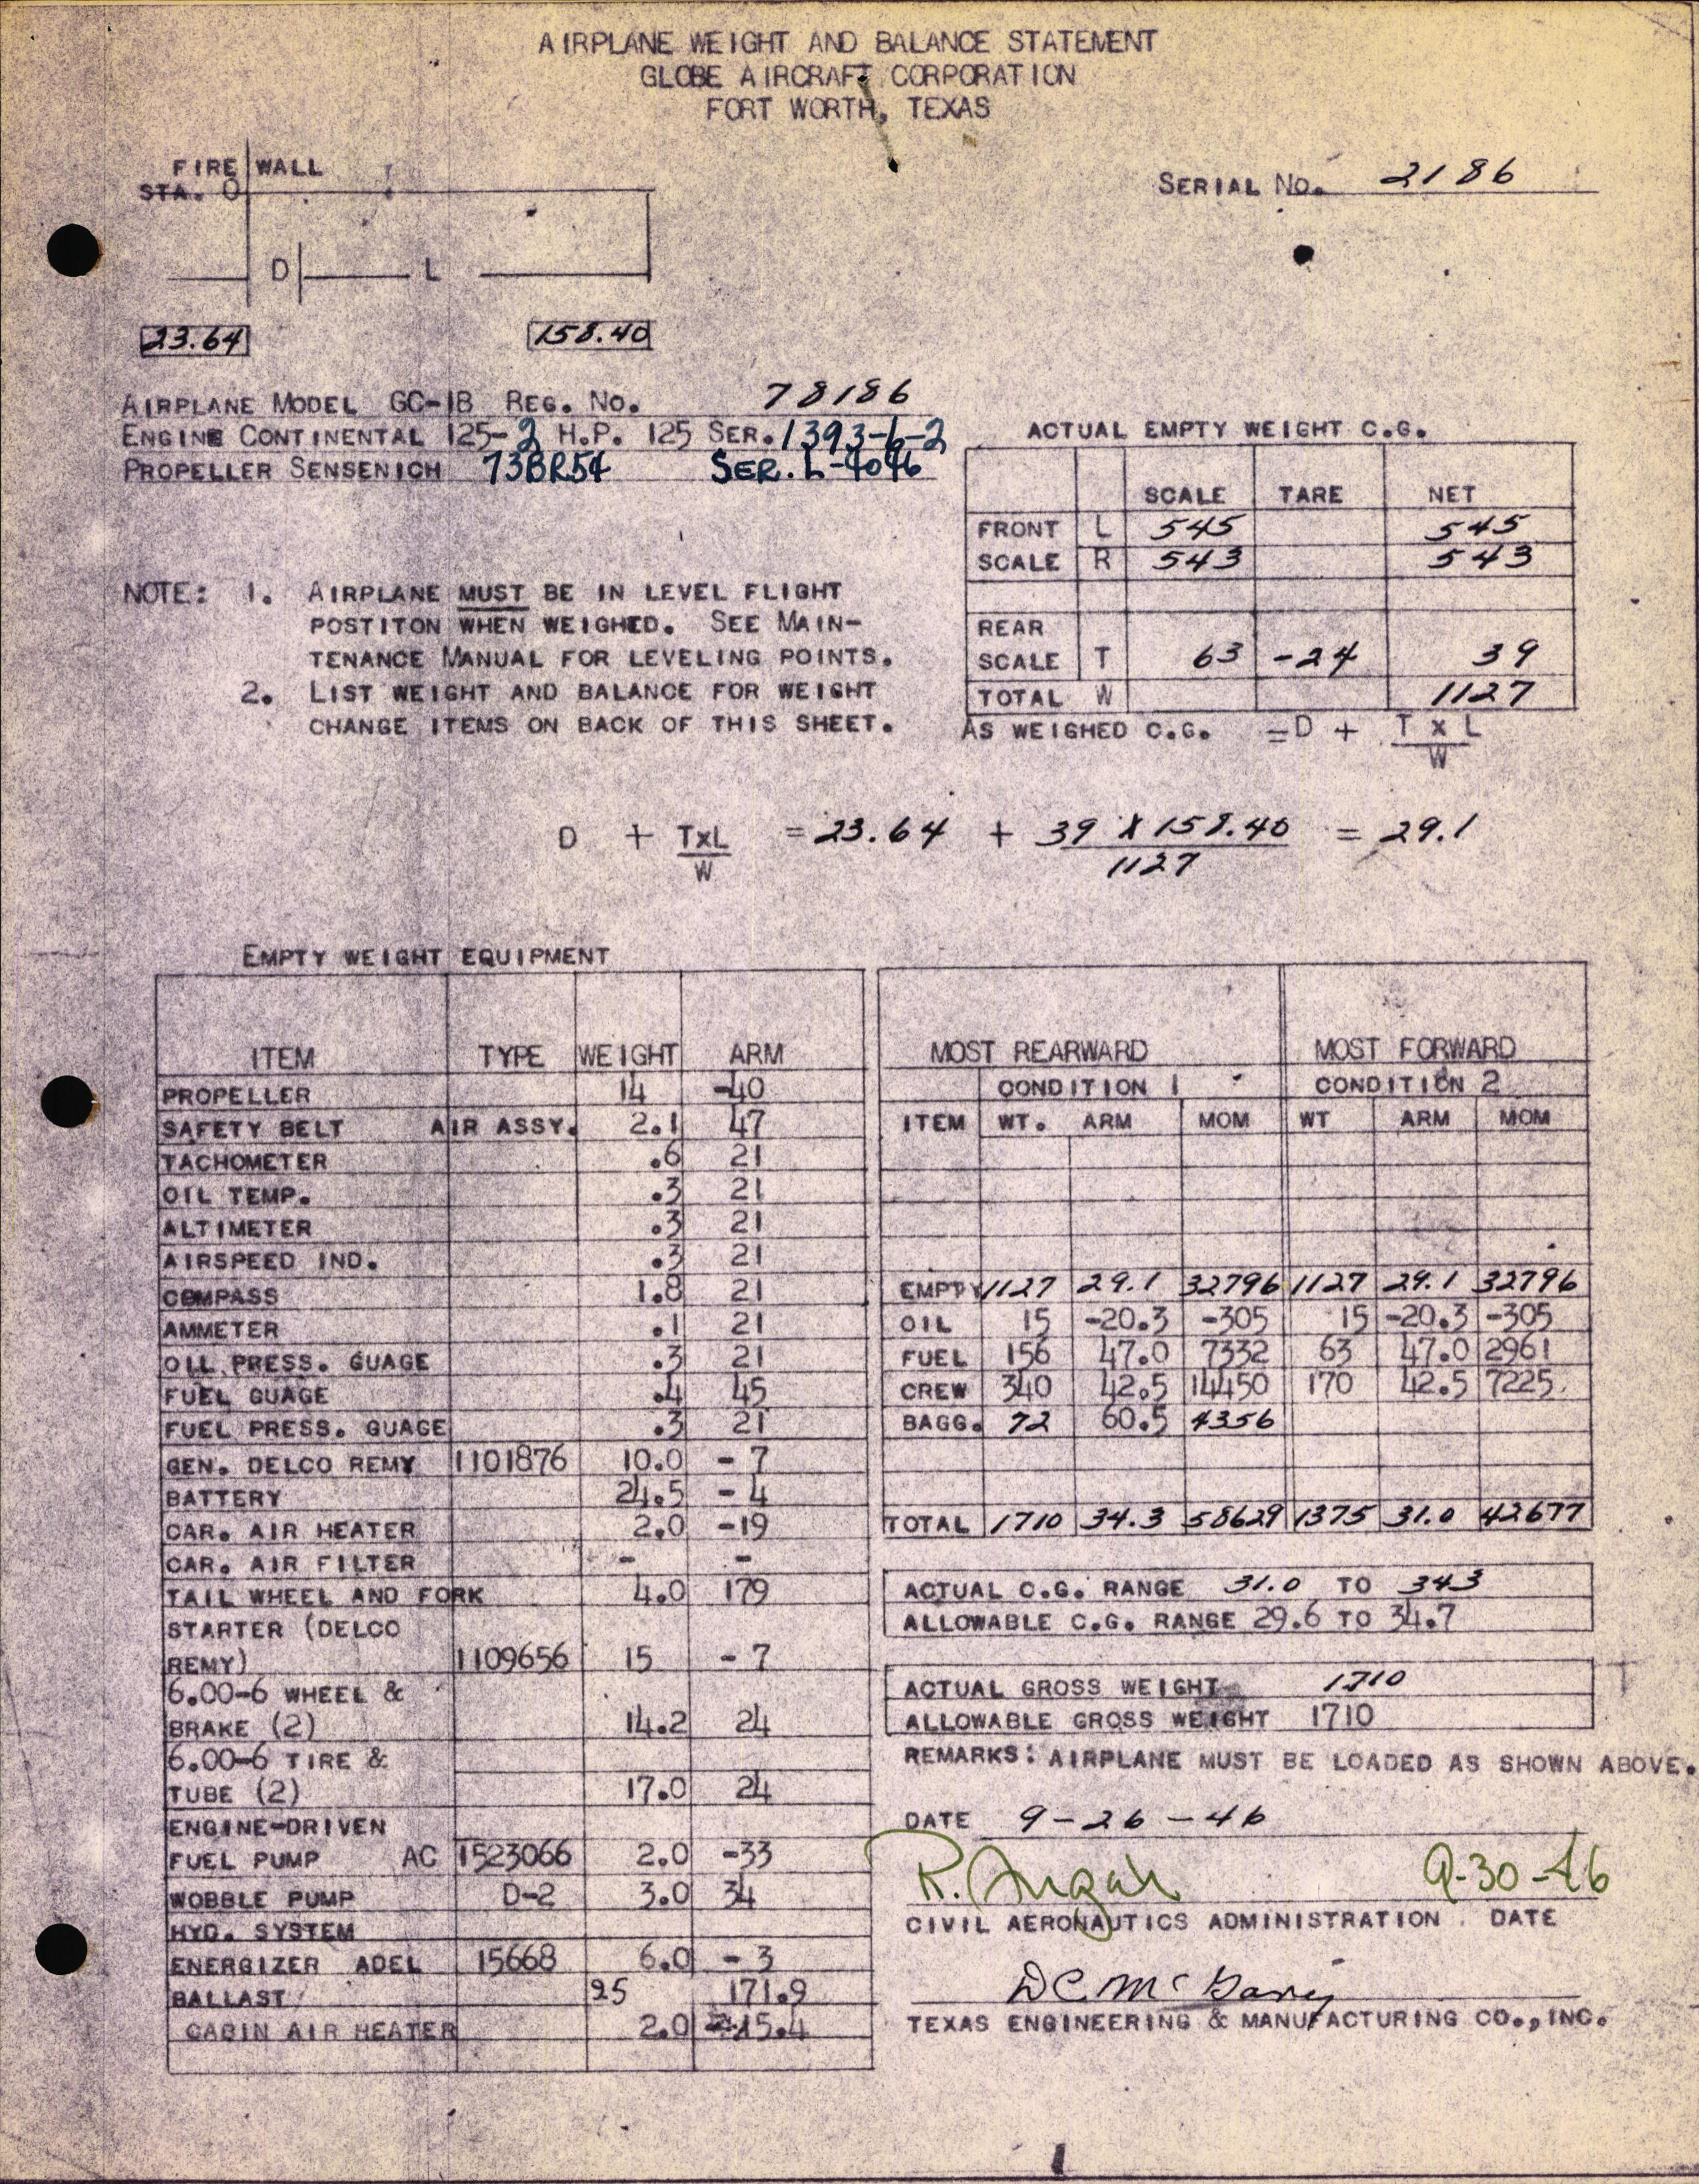 AIRPLANE WEIGHT AND BALANCE STATEMENT
GLOBE AIRCRAFT CORPORATION
FORT WORTH, TEXAS
FIRE WALL
STA. 0
SERIAL NO. 2186
D L
23.64 158.40
AIRPLANE MODEL GC-1B REG. NO. 78186
ENGINE CONTINENTAL 125-2 H.P. 125 SER. 1393-6-2
PROPELLER SENSENICH 73BR54 SER. L-4046
ACTUAL EMPTY WEIGHT C.G.
SCALE TARE NET
FRONT L 545 545
SCALE R 543 543
REAR
SCALE T 63 -24 39
TOTAL W 1127
AS WEIGHED C.G. =D + T X L
W
NOTE: 1. AIRPLANE MUST BE IN LEVEL FLIGHT
POSTITON WHEN WEIGHED. SEE MAIN-
TENANCE MANUAL FOR LEVELING POINTS.
2. LIST WEIGHT AND BALANCE FOR WEIGHT
CHANGE ITEMS ON BACK OF THIS SHEET.
D + TxL = 23.64 + 39 X 158.40 = 29.1
W 1127
EMPTY WEIGHT EQUIPMENT
ITEM TYPE WEIGHT ARM
PROPELLER 14 -40
SAFETY BELT AIR ASSY. 2.1 47
TACHOMETER .6 21
OIL TEMP. .3 21
ALTIMETER .3 21
AIRSPEED IND. .3 21
COMPASS 1.8 21
AMMETER .1 21
OIL PRESS. GUAGE .3 21
FUEL GUAGE .4 45
FUEL PRESS. GUAGE .3 21
GEN. DELCO REMY 1101876 10.0 - 7
BATTERY 24.5 - 4
CAR. AIR HEATER 2.0 -19
CAR. AIR FILTER - -
TAIL WHEEL AND FORK 4.0 179
STARTER (DELCO
REMY) 1109656 15 - 7
6.00-6 WHEEL &
BRAKE (2) 14.2 24
6.00-6 TIRE &
TUBE (2) 17.0 24
ENGINE-DRIVEN
FUEL PUMP AC 1523066 2.0 -33
WOBBLE PUMP D-2 3.0 34
HYD. SYSTEM
ENERGIZER ADEL 15668 6.0 - 3
BALLAST 25 171.9
CABIN AIR HEATER 2.0 -15.4
MOST REARWARD MOST FORWARD
CONDITION 1 CONDITION 2
ITEM WT. ARM MOM WT ARM MOM
EMPTY 1127 29.1 32796 1127 29.1 32796
OIL 15 -20.3 -305 15 -20.3 -305
FUEL 156 47.0 7332 63 47.0 2961
CREW 340 42.5 14450 170 42.5 7225.
BAGG. 72 60.5 4356
TOTAL 1710 34.3 58629 1375 31.0 42677
ACTUAL C.G. RANGE 31.0 TO 343
ALLOWABLE C.G. RANGE 29.6 TO 34.7
ACTUAL GROSS WEIGHT 1710
ALLOWABLE GROSS WEIGHT 1710
REMARKS: AIRPLANE MUST BE LOADED AS SHOWN ABOVE.
DATE 9-26-46
R. 9-30-46
CIVIL AERONAUTICS ADMINISTRATION. DATE
DC
TEXAS ENGINEERING & MANUFACTURING CO., INC.
1